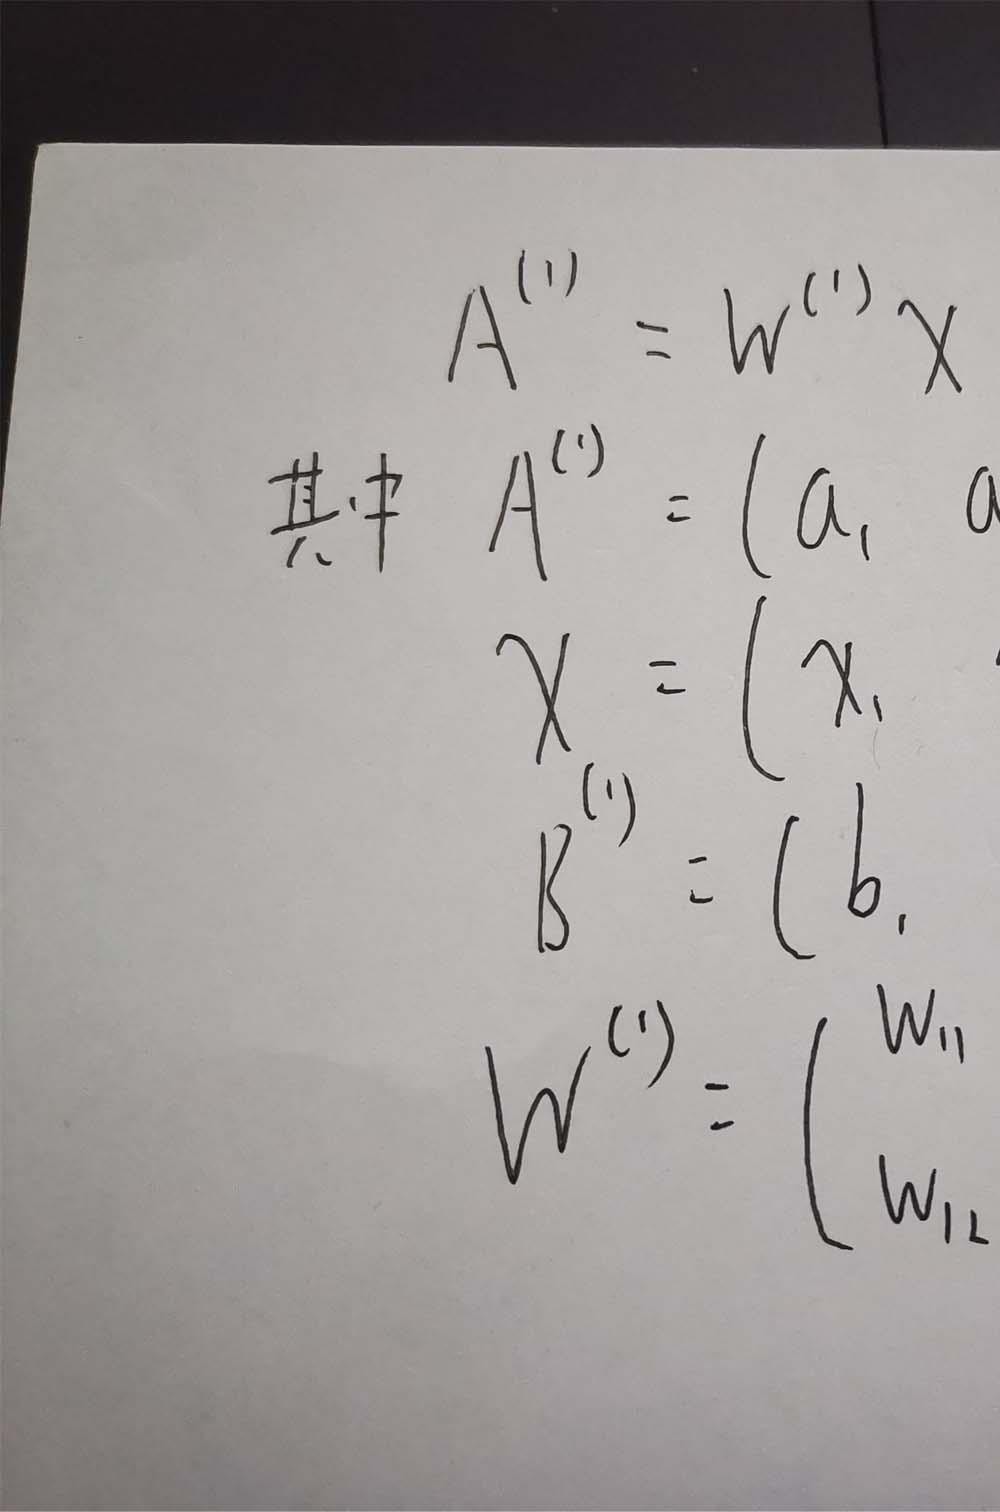 A⁽¹⁾ = W⁽¹⁾ X
其中 A⁽¹⁾ = ( a₁ a
X = ( x₁
B⁽¹⁾ = ( b₁
W⁽¹⁾ = ( w₁₁
w₁₂